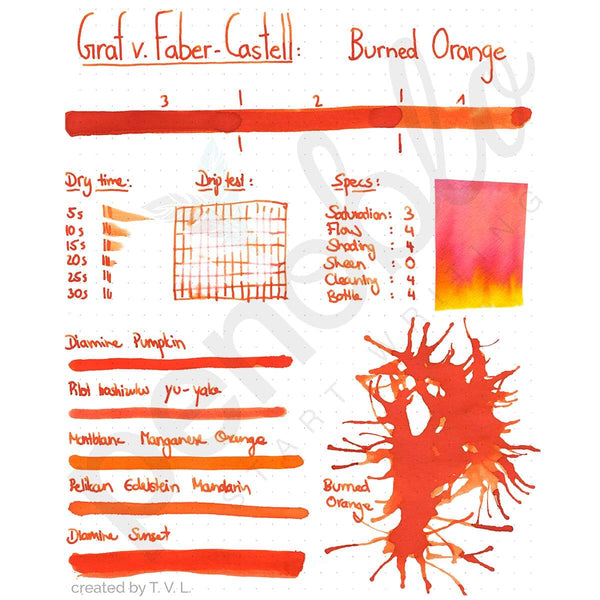 Graf v. Faber-Castell: Burned Orange
3 2 1
Dry time:
5s
10s
15s
20s
25s
30s
Drip test:
Specs:
Saturation: 3
Flow : 4
Shading : 4
Sheen : 0
Cleaning : 4
Bottle : 4
Diamine Pumpkin
Pilot Iroshizuku yu-yake
Montblanc Manganese Orange
Pelikan Edelstein Mandarin
Diamine Sunset
Burned
Orange
penoblo
START WRITING
created by T. V. L.